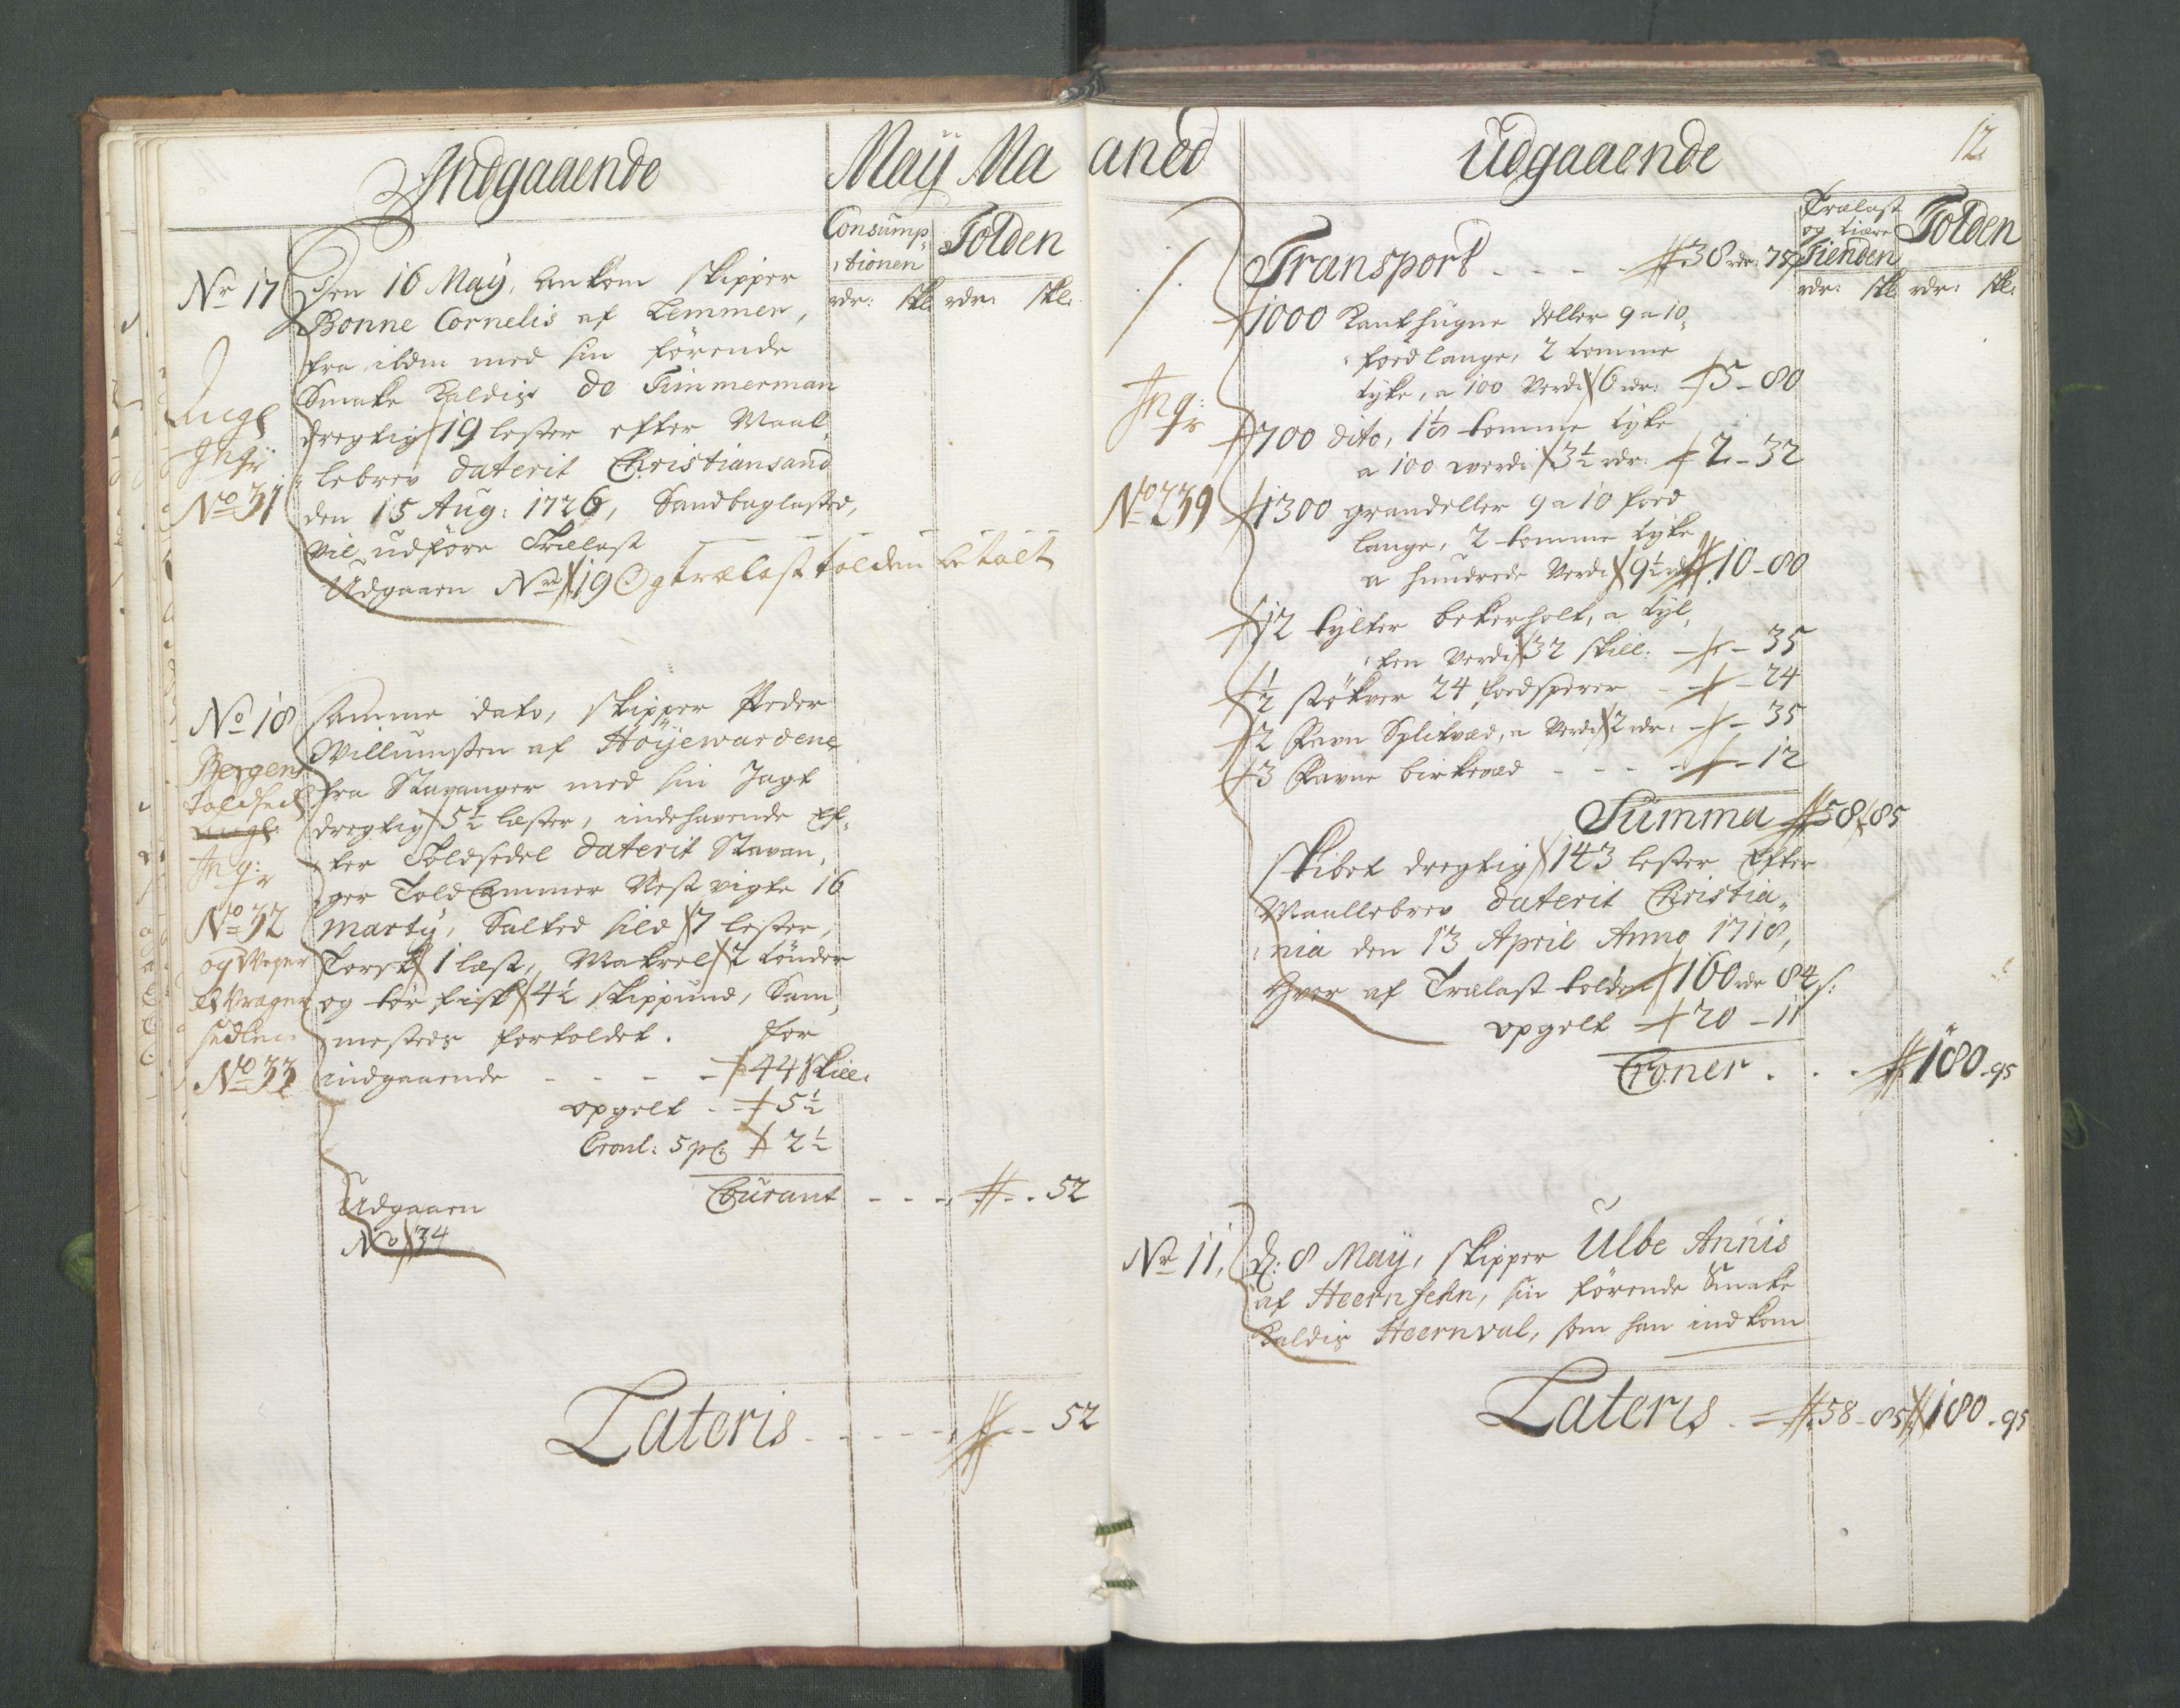 Indgaaende
Maÿ Ma
Consump-
tionen
Tolden
rdr: skl: rdr: skl:
Nr 17
Den 16 Maÿ, ankom skipper
Bonne Cornelis af Lemmer,
fra ibdm med sin förende
Smake Kaldis de Timmerman
dregtig 19 lester efter Maal-
lebrev daterit Christiansand
den 15 Aug: 1726, Sandbaglasted,
vil udföre Trælast
Udgaaen No 19 Og trælast tolden betalt
Angl
Ing:r
No 31
No 18
samme dato, skipper Peder
Willumsen af Höÿewardene
fra Stavanger med sin Jagt
dregtig 5½ lester, indehavende Ef-
ter Toldsedel daterit Stavan-
ger Told Cammer Nestvigte 16
Martÿ, Salted sild 7 lester,
Torsk 1 læst, Makrel 2 tönder
og tör fisk 4½ skippund, Sam-
mesteds fortoldet. for
indgaaende - - - - 44 skill:
opgelt - - 5½
Cronl: 5 pC 2½
Courant - - - 52
Udgaaen
No 34
Bergens
toldsedl
Ing:r
No 32
og Veyer
& Vrager
sedlen
No 33
Lateris - - - - - 52
aned
Udgaaende
12
Trælast
og tiære
Tienden
Tolden
rdr: skl: rdr: skl:
Transport - - - - 38 rdr: 75
1000 Kanthugne deller 9 a 10
foed lange, 2 tomme
tyke, a 100 Verdi 6 rdr: 5 - 80
700 dito, 1½ tomme tyke
a 100 werdi 3½ rdr: 2 - 32
Ing:r
No 239
1300 grandeller 9 a 10 foed
lange, 2 tomme tyke
a hundrede Verdi 9½ rdr 10 - 80
12 tylter bekerholt, a tyl-
ten Verdi 32 skill: - 35
½ stökver 24 foedsperer - - 24
2 Favn Splitved, a Verdi 2 rdr: - 35
3 Favne birkeved - - - 12
Summa 58 - 85
skibet dregtig 143 lester Efter
Maallebrev daterit Christia-
nia den 13 April Anno 1718,
Hvor af Trælast tolden 160 rdr 84 s:
opgelt 20 - 11
Croner . . . 180 - 95
Nr 11,
d: 8 Maÿ, skipper Ulbe Annis
af Heernfehn, sin förende Smake
Kaldis Heernval, som han indkom
Lateris - 58 - 85 180 - 95